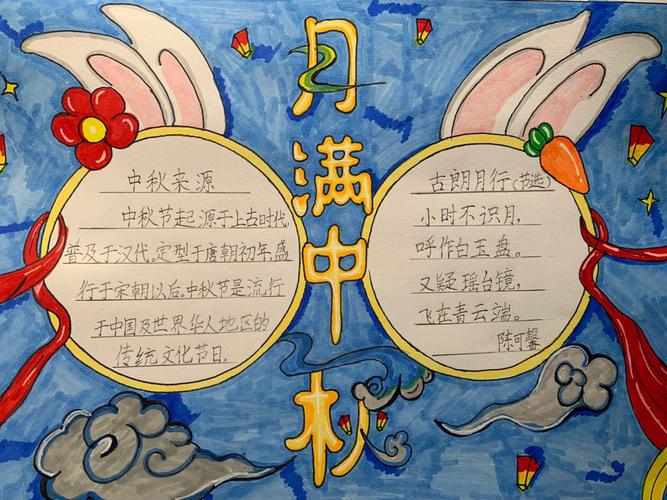 月满中秋
中秋来源
中秋节起源于上古时代,
普及于汉代,定型于唐朝初年,盛
行于宋朝以后。中秋节是流行
于中国及世界华人地区的
传统文化节日。
古朗月行(节选)
小时不识月,
呼作白玉盘。
又疑瑶台镜,
飞在青云端。
陈可馨